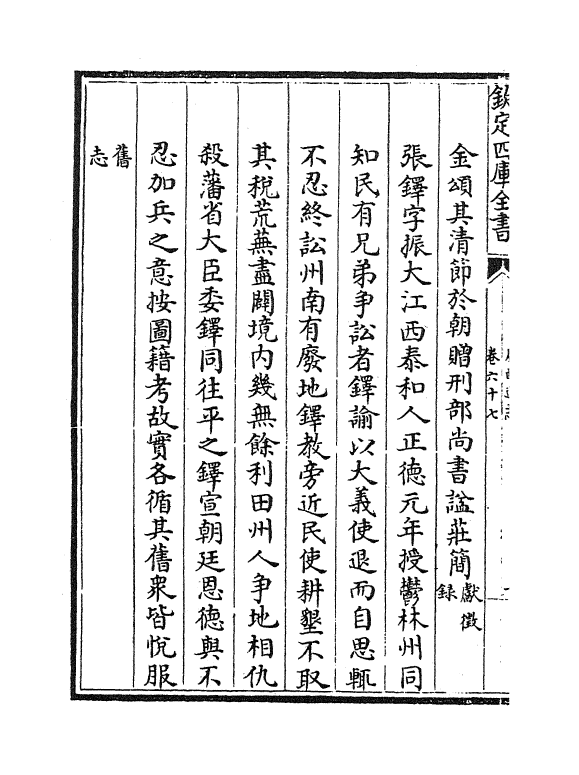 欽定四庫全書
卷六十七
金頌其清節於朝贈刑部尚書諡莊簡獻徵錄
張鐸字振大江西泰和人正德元年授鬱林州同
知民有兄弟争訟者鐸諭以大義使退而自思輒
不忍終訟州南有廢地鐸教旁近民使耕墾不取
其稅荒蕪盡闢境内幾無餘利田州人争地相仇
殺藩省大臣委鐸同往平之鐸宣朝廷恩德與不
忍加兵之意按圖籍考故實各循其舊衆皆悅服
舊志